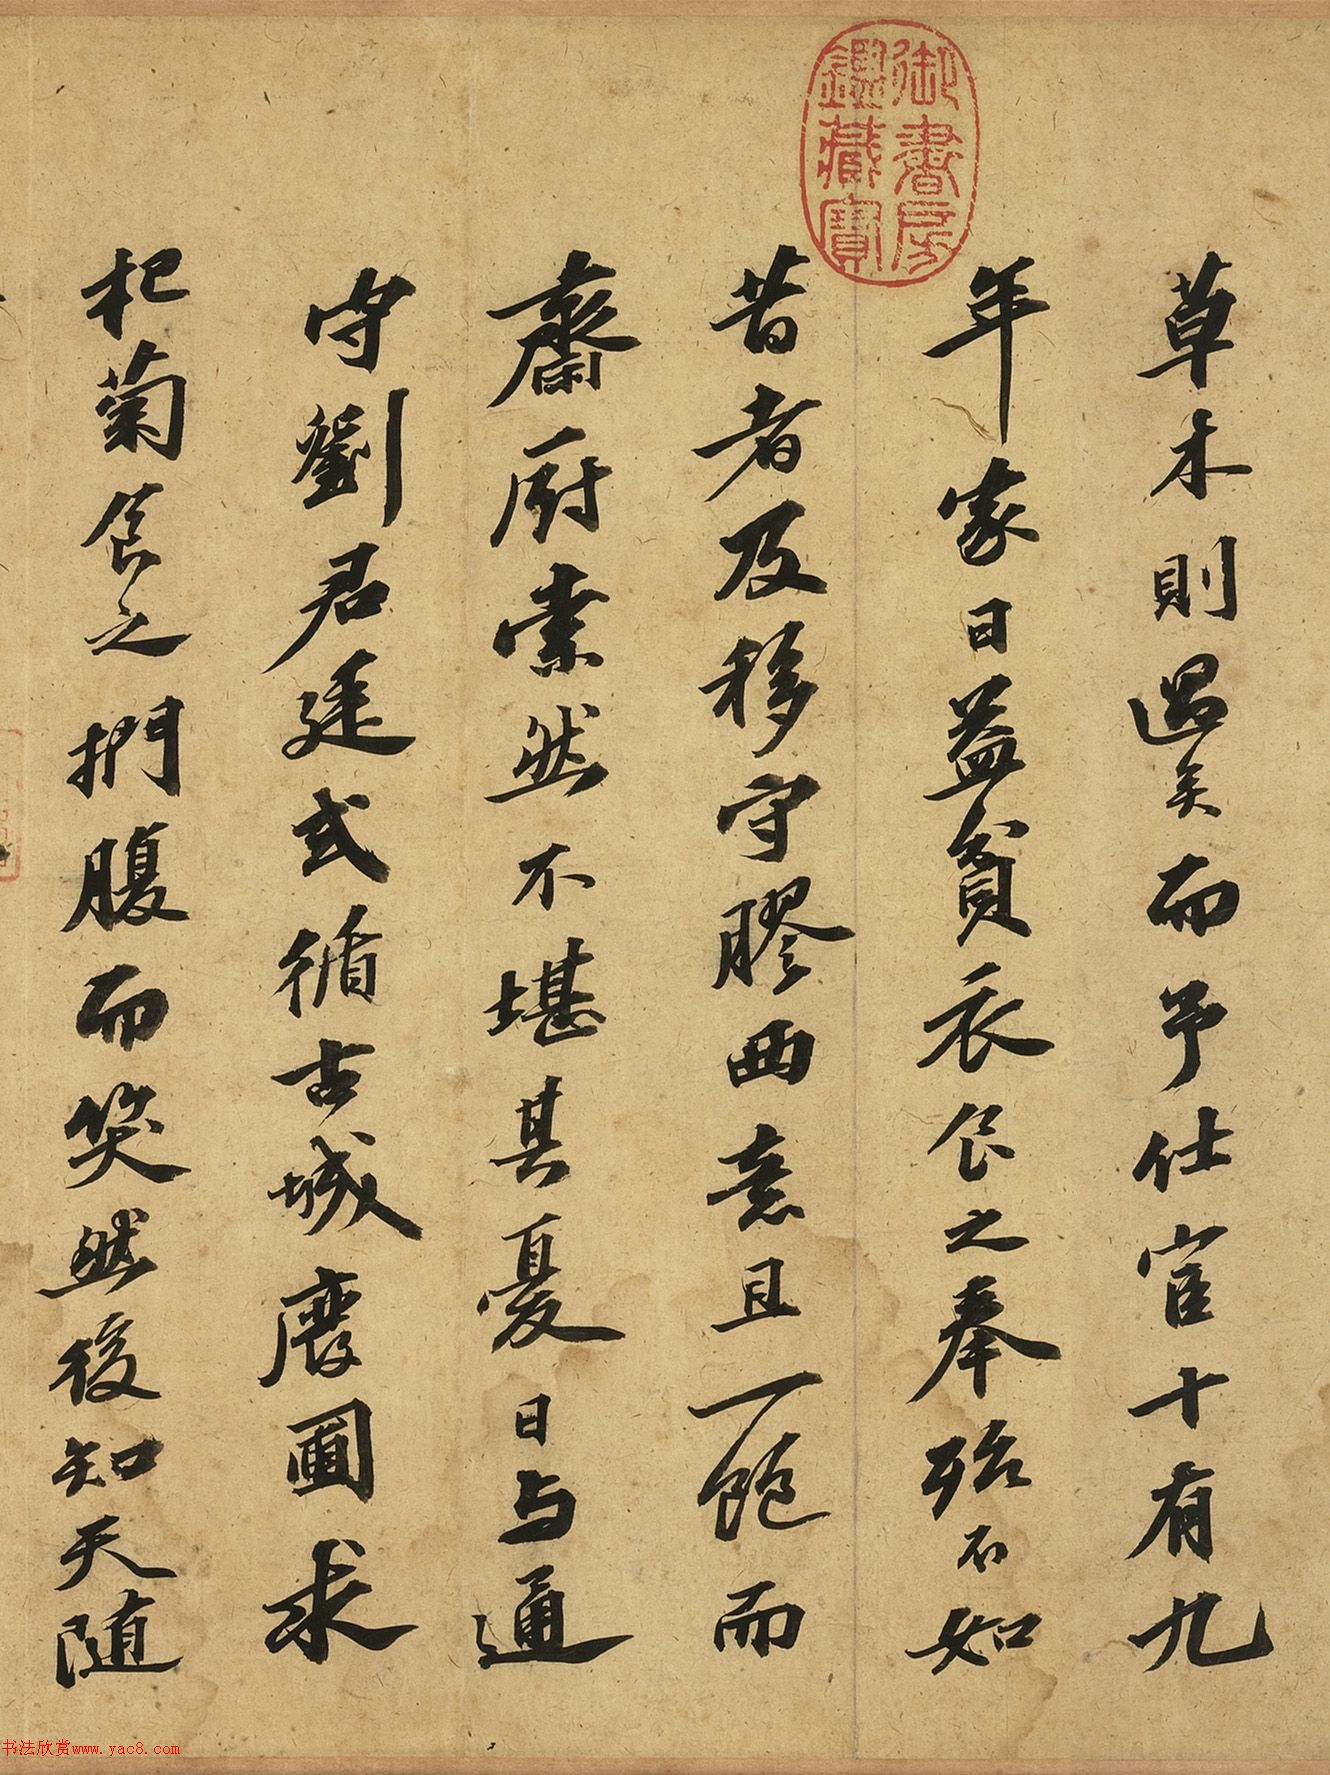 草木則過矣而予仕宦十有九
年家日益貧衣食之奉殆不如
昔者及移守膠西意且一飽而
齋厨索然不堪其憂日与通
守劉君廷式循古城廢圃求
杞菊食之捫腹而笑然後知天随
御書房鑑藏寶
书法欣赏www.yac8.com